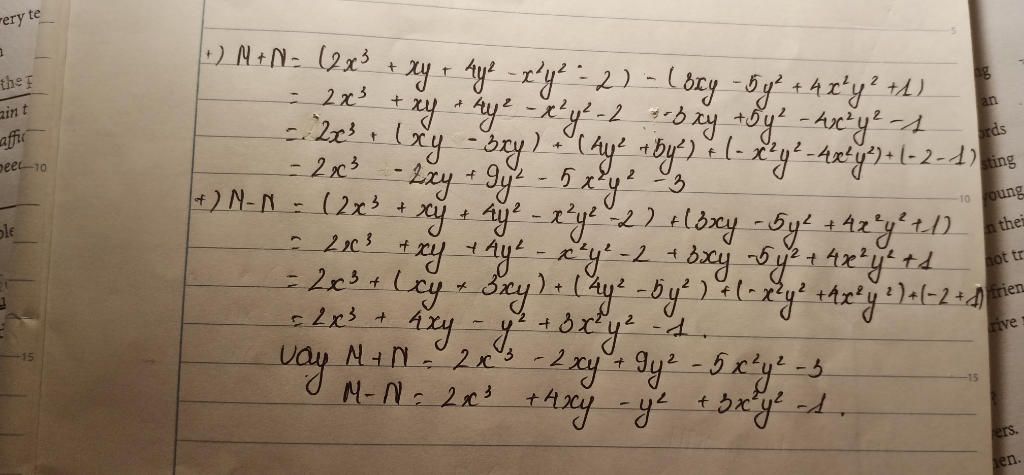 +) M+N= (2x³ + xy + 4y² - x²y² - 2) - (3xy - 5y² + 4x²y² +1)
= 2x³ + xy + 4y² - x²y² - 2 - 3xy + 5y² - 4x²y² - 1
= 2x³ + (xy - 3xy) + (4y² + 5y²) + (- x²y² - 4x²y²) + (-2 - 1)
= 2x³ - 2xy + 9y² - 5x²y² - 3
+) M-N = (2x³ + xy + 4y² - x²y² - 2) + (3xy - 5y² + 4x²y² + 1)
= 2x³ + xy + 4y² - x²y² - 2 + 3xy - 5y² + 4x²y² + 1
= 2x³ + (xy + 3xy) + (4y² - 5y²) + (- x²y² + 4x²y²) + (-2 + 1)
= 2x³ + 4xy - y² + 3x²y² - 1.
Vay M+N = 2x³ - 2xy + 9y² - 5x²y² - 3
M-N = 2x³ + 4xy - y² + 3x²y² - 1.
5
10
15
10
15
ery te
the
ain t
an
ords
sting
oung
n thei
not tr
frien
rive
ers.
en.